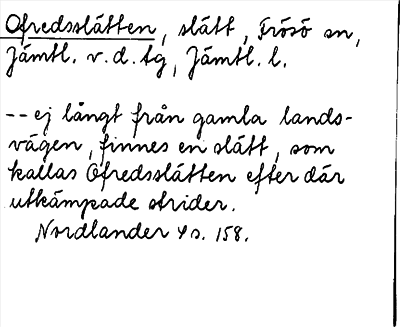 Ofredsslätten, slätt, Frösö sn,
Jämtl. v. d. tg, Jämtl. l.
-- ej långt från gamla lands-
vägen, finnes en slätt, som
kallas Ofredsslätten efter där
utkämpade strider.
Nordlander 4 s. 158.